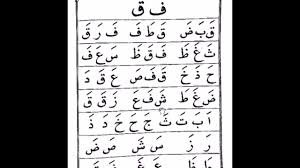 ف ق
قَبَضَ قَطَفَ فَرَقَ
سَعَفَ
حَذَخَ قَفَصَ عَقَدَ
ضَغَطَ شَفَعَ زَقَقَ
اَ بَ تَ ثَ جَ حَ خَ دَ ذَ
رَ زَ سَ شَ صَ ضَ